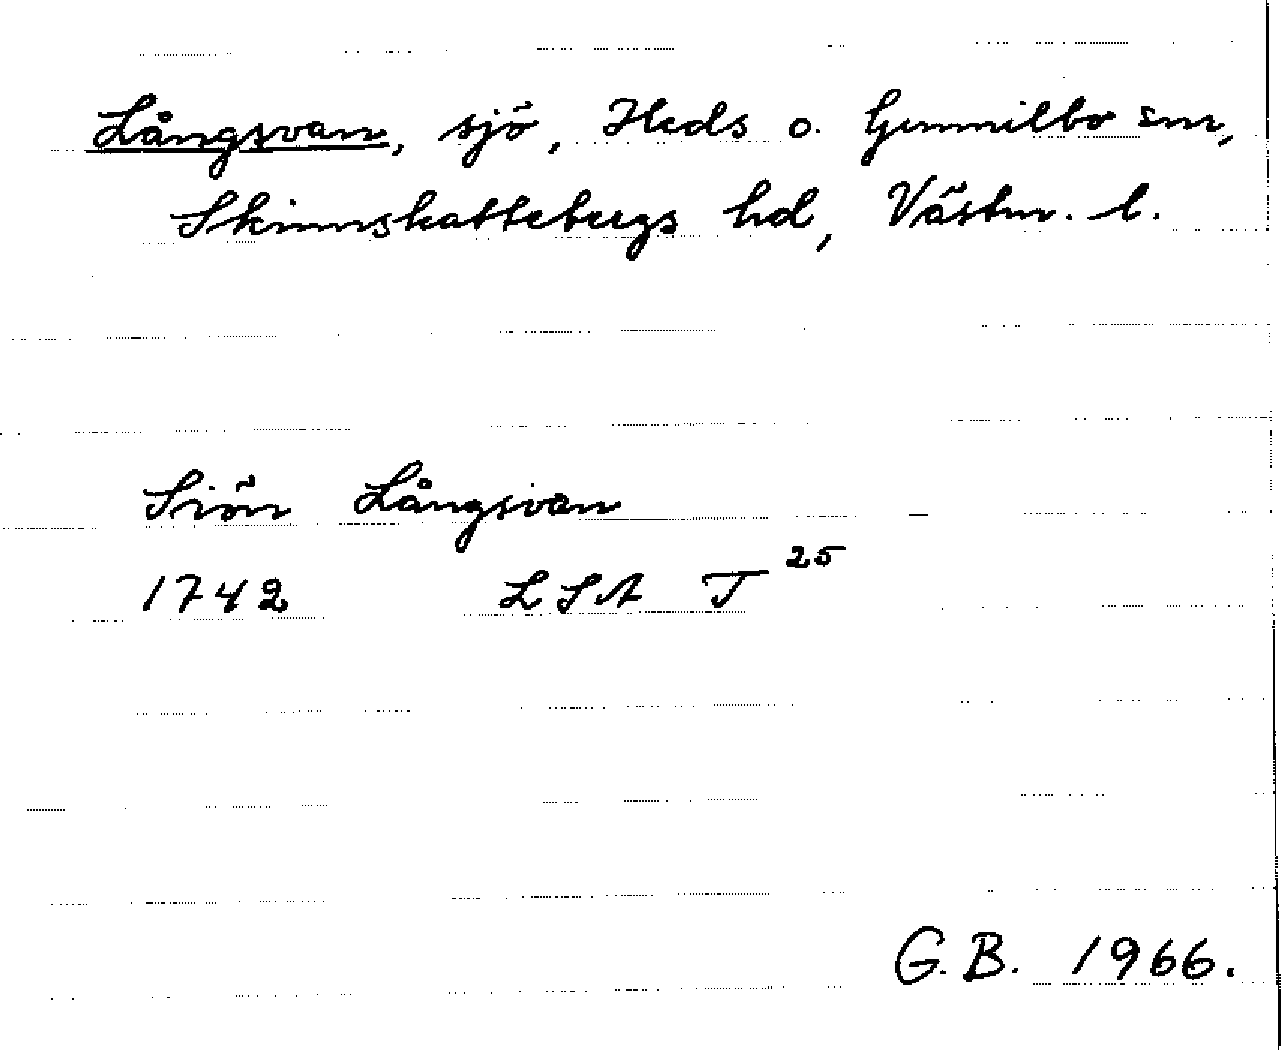 Långsvan, sjö, Heds o. Gunnilbo snr,
Skinnskattebergs hd, Västm. l.
Siön Långsvan
1742 LSA T 25
G.B. 1966.